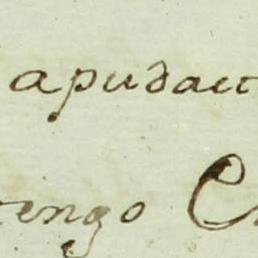 apudacu
engo C